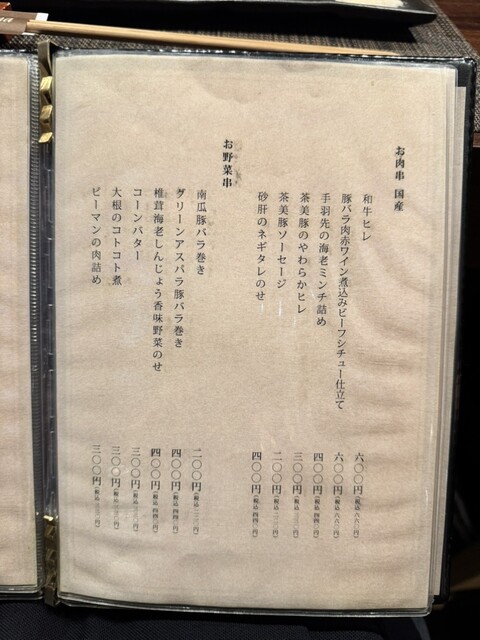 お肉串 国産
和牛ヒレ 六〇〇円(税込 六六〇円)
豚バラ肉赤ワイン煮込みビーフシチュー仕立て 六〇〇円(税込 六六〇円)
手羽先の海老ミンチ詰め 四〇〇円(税込 四四〇円)
茶美豚のやわらかヒレ 三〇〇円(税込 三三〇円)
茶美豚ソーセージ 二〇〇円(税込 二二〇円)
砂肝のネギタレのせ 四〇〇円(税込 四四〇円)
お野菜串
南瓜豚バラ巻き 二〇〇円(税込 二二〇円)
グリーンアスパラ豚バラ巻き 四〇〇円(税込 四四〇円)
椎茸海老しんじょう香味野菜のせ 四〇〇円(税込 四四〇円)
コーンバター 三〇〇円(税込 三三〇円)
大根のコトコト煮 三〇〇円(税込 三三〇円)
ピーマンの肉詰め 三〇〇円(税込 三三〇円)